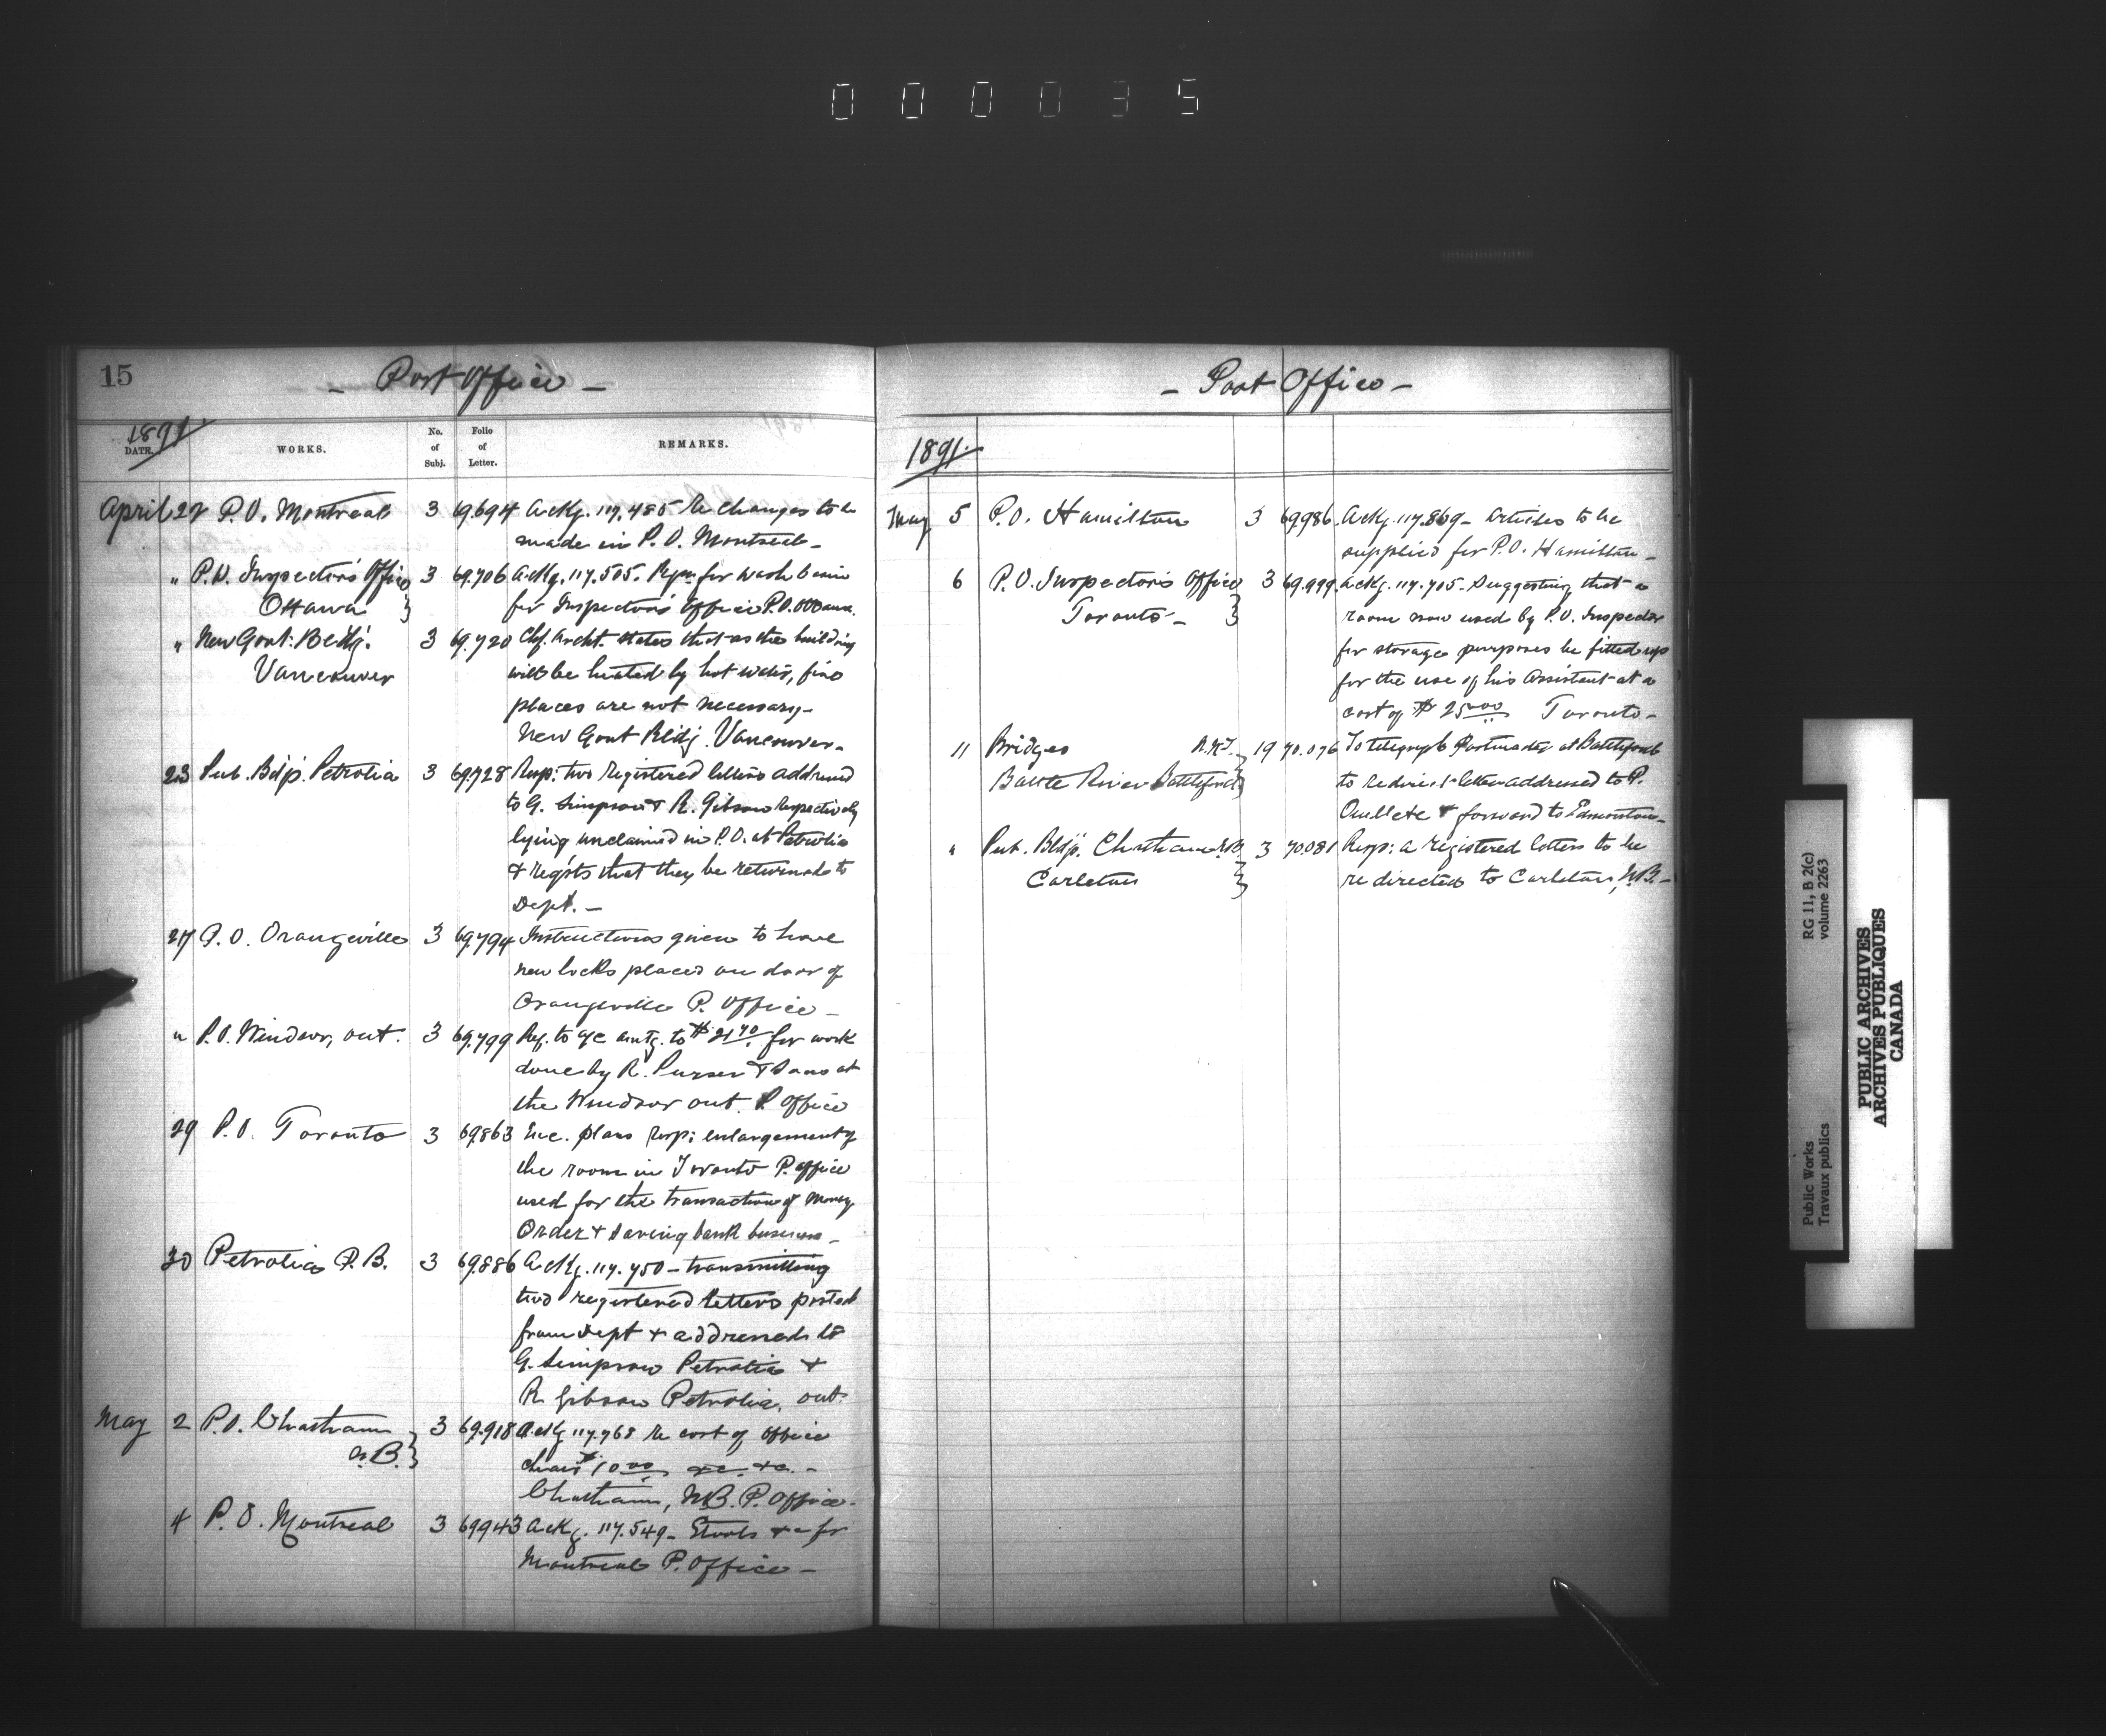 000035
15
- Post Office -
1891
DATE.
WORKS.
No. of Subj.
Folio of Letter.
REMARKS.
April 22 P.O. Montreal 3 69.694 Ackg. 117.485 Re changes to be
made in P.O. Montreal -
" P.O. Inspector's Office 3 69.706 Ackg. 117.505. for wash basin
Ottawa } for Inspector's Office P.O. Ottawa.
" New Govt: Bldg. 3 69.720 Chf. Archt. states that as the building
Vancouver will be heated by hot water, fire
places are not necessary -
New Govt Bldg. Vancouver -
23 Pub. Bldg. Petrolia 3 69.728 Resp: two registered letters addressed
to G. Simpson & R. Gibson respectively
lying unclaimed in P.O. at Petrolia
& reqsts that they be returned to
Dept. -
27 P.O. Orangeville 3 69.794 Instructions given to have
new locks placed on door of
Orangeville P. Office -
" P.O. Windsor, Ont. 3 69.799 Ref. to a/c amtg. to $21.70 for work
done by R. Purser & Sons at
the Windsor Ont. P. Office
29 P.O. Toronto 3 69863 Enc. plans resp: enlargement of
the room in Toronto P. Office
used for the transaction of Money
Order & Saving bank business -
30 Petrolia P.B. 3 69.886 Ackg. 117.750 - transmitting
two registered letters posted
from Dept & addressed to
G. Simpson Petrolia &
R Gibson Petrolia, Ont.
May 2 P.O. Chatham 3 69.918 Ackg 117.768 Re cost of office
N.B. } chair $10.00 &c. &c. -
Chatham, N.B. P. Office -
4 P.O. Montreal 3 69943 Ackg. 117.549 - Stools &c for
Montreal P. Office -
- Post Office -
1891.
May 5 P.O. Hamilton 3 69.986. Ackg. 117.869 - Articles to be
supplied for P.O. Hamilton -
6 P.O. Inspector's Office 3 69.999. Ackg. 117.705 - Suggesting that a
Toronto - } room now used by P.O. Inspector
for storage purposes be fitted up
for the use of his Assistant at a
cost of $25.00 Toronto -
11 Bridges N.W.T. 19 70.076 To telegraph Postmaster at Battleford
Battle River Battleford } to redirect letter addressed to P.
Ouellete & forward to Edmonton -
" Pub. Bldg. Chatham N.B. 3 70.081 Resp: a registered letters to be
Carleton } re directed to Carleton, N.B. -
RG 11, B 2(c)
volume 2263
Public Works
Travaux publics
PUBLIC ARCHIVES
ARCHIVES PUBLIQUES
CANADA